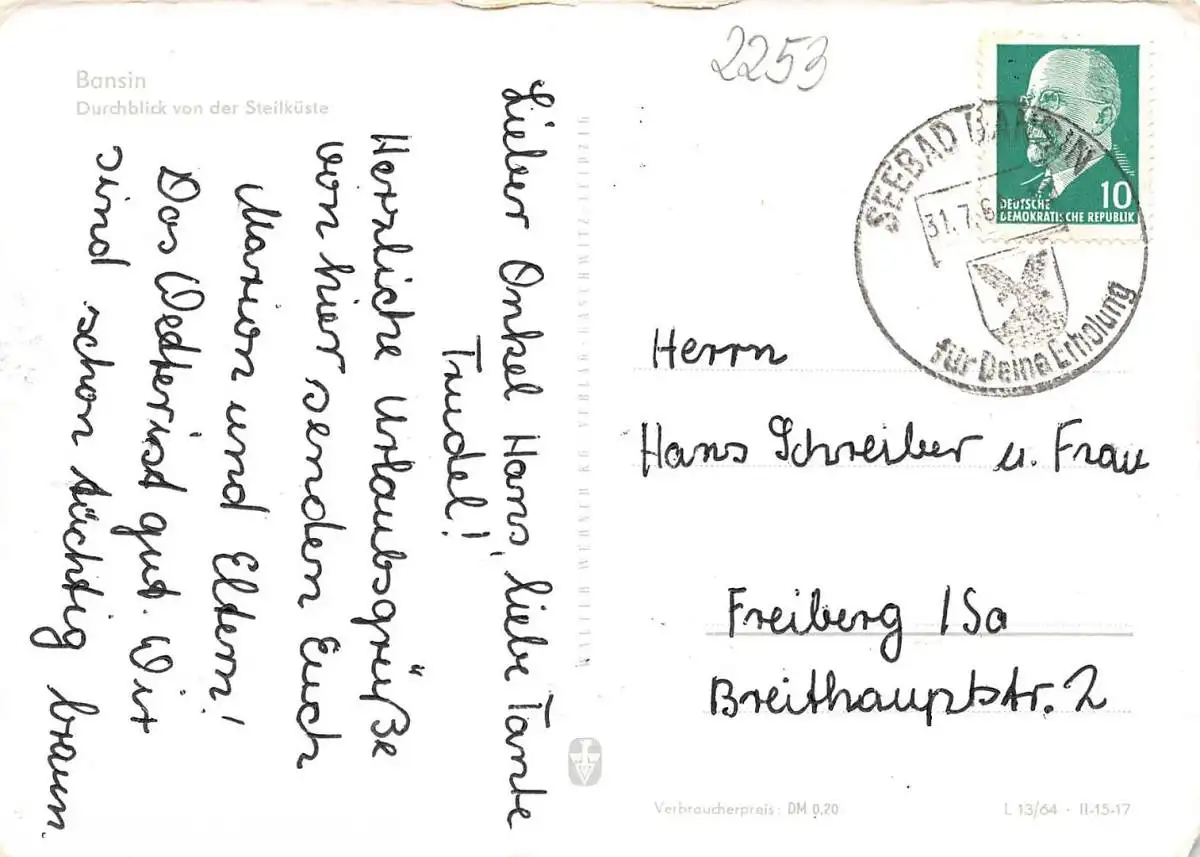 Bansin
Durchblick von der Steilküste
Lieber Onkel Hans, liebe Tante
Trudel!
Herzliche Urlaubsgrüße
von hier senden Euch
Marion und Eltern!
Das Wetter ist gut. Wir
sind schon tüchtig braun.
2253
DEUTSCHE
DEMOKRATISCHE REPUBLIK
10
SEEBAD BANSIN
31.7.6
für Deine Erholung
Herrn
Hans Schreiber u. Frau
Freiberg /Sa
Breithauptstr. 2
Verbraucherpreis: DM 0,20
L 13/64 · II-15-17